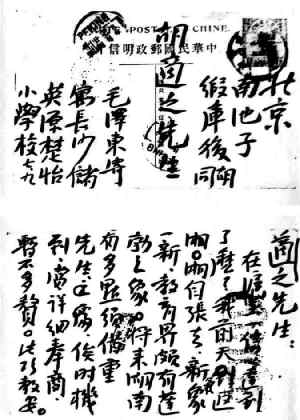 POST CHINE
中華民國郵政明信片
北京
南池子
緞庫後胡同
胡適之先生
毛澤東寄
寓長沙儲
英源楚怡
小學校 七九
適之先生：
在滬上一信達到
了麼？我前天返
湘。湘自張去，氣象
一新，教育界頗有蓬
勃之象。將來湖南
有多點須借重
先生，俟時機
到，當詳細奉商，
暫不多贅。此頌教安。